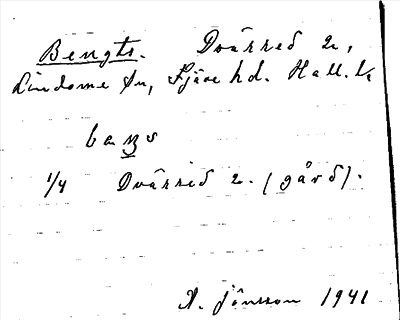 Bengts. Dvärred 2,
Lindome sn, Fjäre hd. Hall. l.
baŋs
1/4 Dvärred 2. (gård).
A. Jönsson 1941